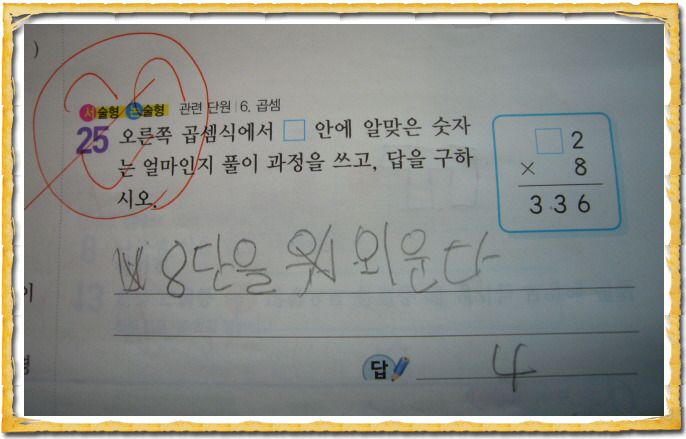 )
서술형/논술형 관련 단원 | 6. 곱셈
25 오른쪽 곱셈식에서 □ 안에 알맞은 숫자
는 얼마인지 풀이 과정을 쓰고, 답을 구하
시오.
□ 2
× 8
3 3 6
8단을 외운다
답 4